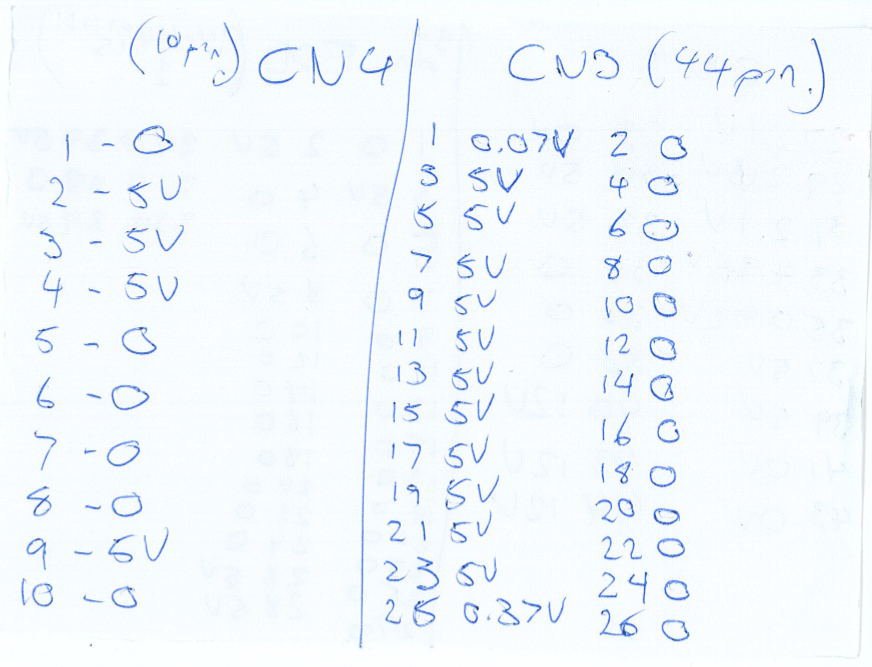 (10pin) CN4
1 - 0
2 - 5V
3 - 5V
4 - 5V
5 - 0
6 - 0
7 - 0
8 - 0
9 - 5V
10 - 0
CN3 (44pin.)
1 0.07V 2 0
3 5V 4 0
5 5V 6 0
7 5V 8 0
9 5V 10 0
11 5V 12 0
13 5V 14 0
15 5V 16 0
17 5V 18 0
19 5V 20 0
21 5V 22 0
23 5V 24 0
25 0.37V 26 0